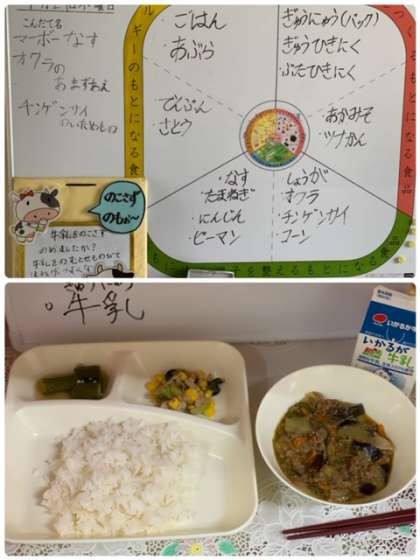 こんだて
マーボーなす
オクラの
あまずあえ
チンゲンサイ
のいためもの
ルギーのもとになる食
ごはん
あぶら
でんぷん
さとう
ぎゅうにゅう(パック)
ぎゅうひきにく
ぶたひきにく
あかみそ
ツナかん
つくるもとになる食
・なす
たまねぎ
・にんじん
・ピーマン
しょうが
オクラ
・チンゲンサイ
・コーン
を整えるもとになる食
のこさず
のもぉ～
牛乳をのこさず
のめましたか?
牛乳をのむとせものがで
牛乳
いかるが
牛乳